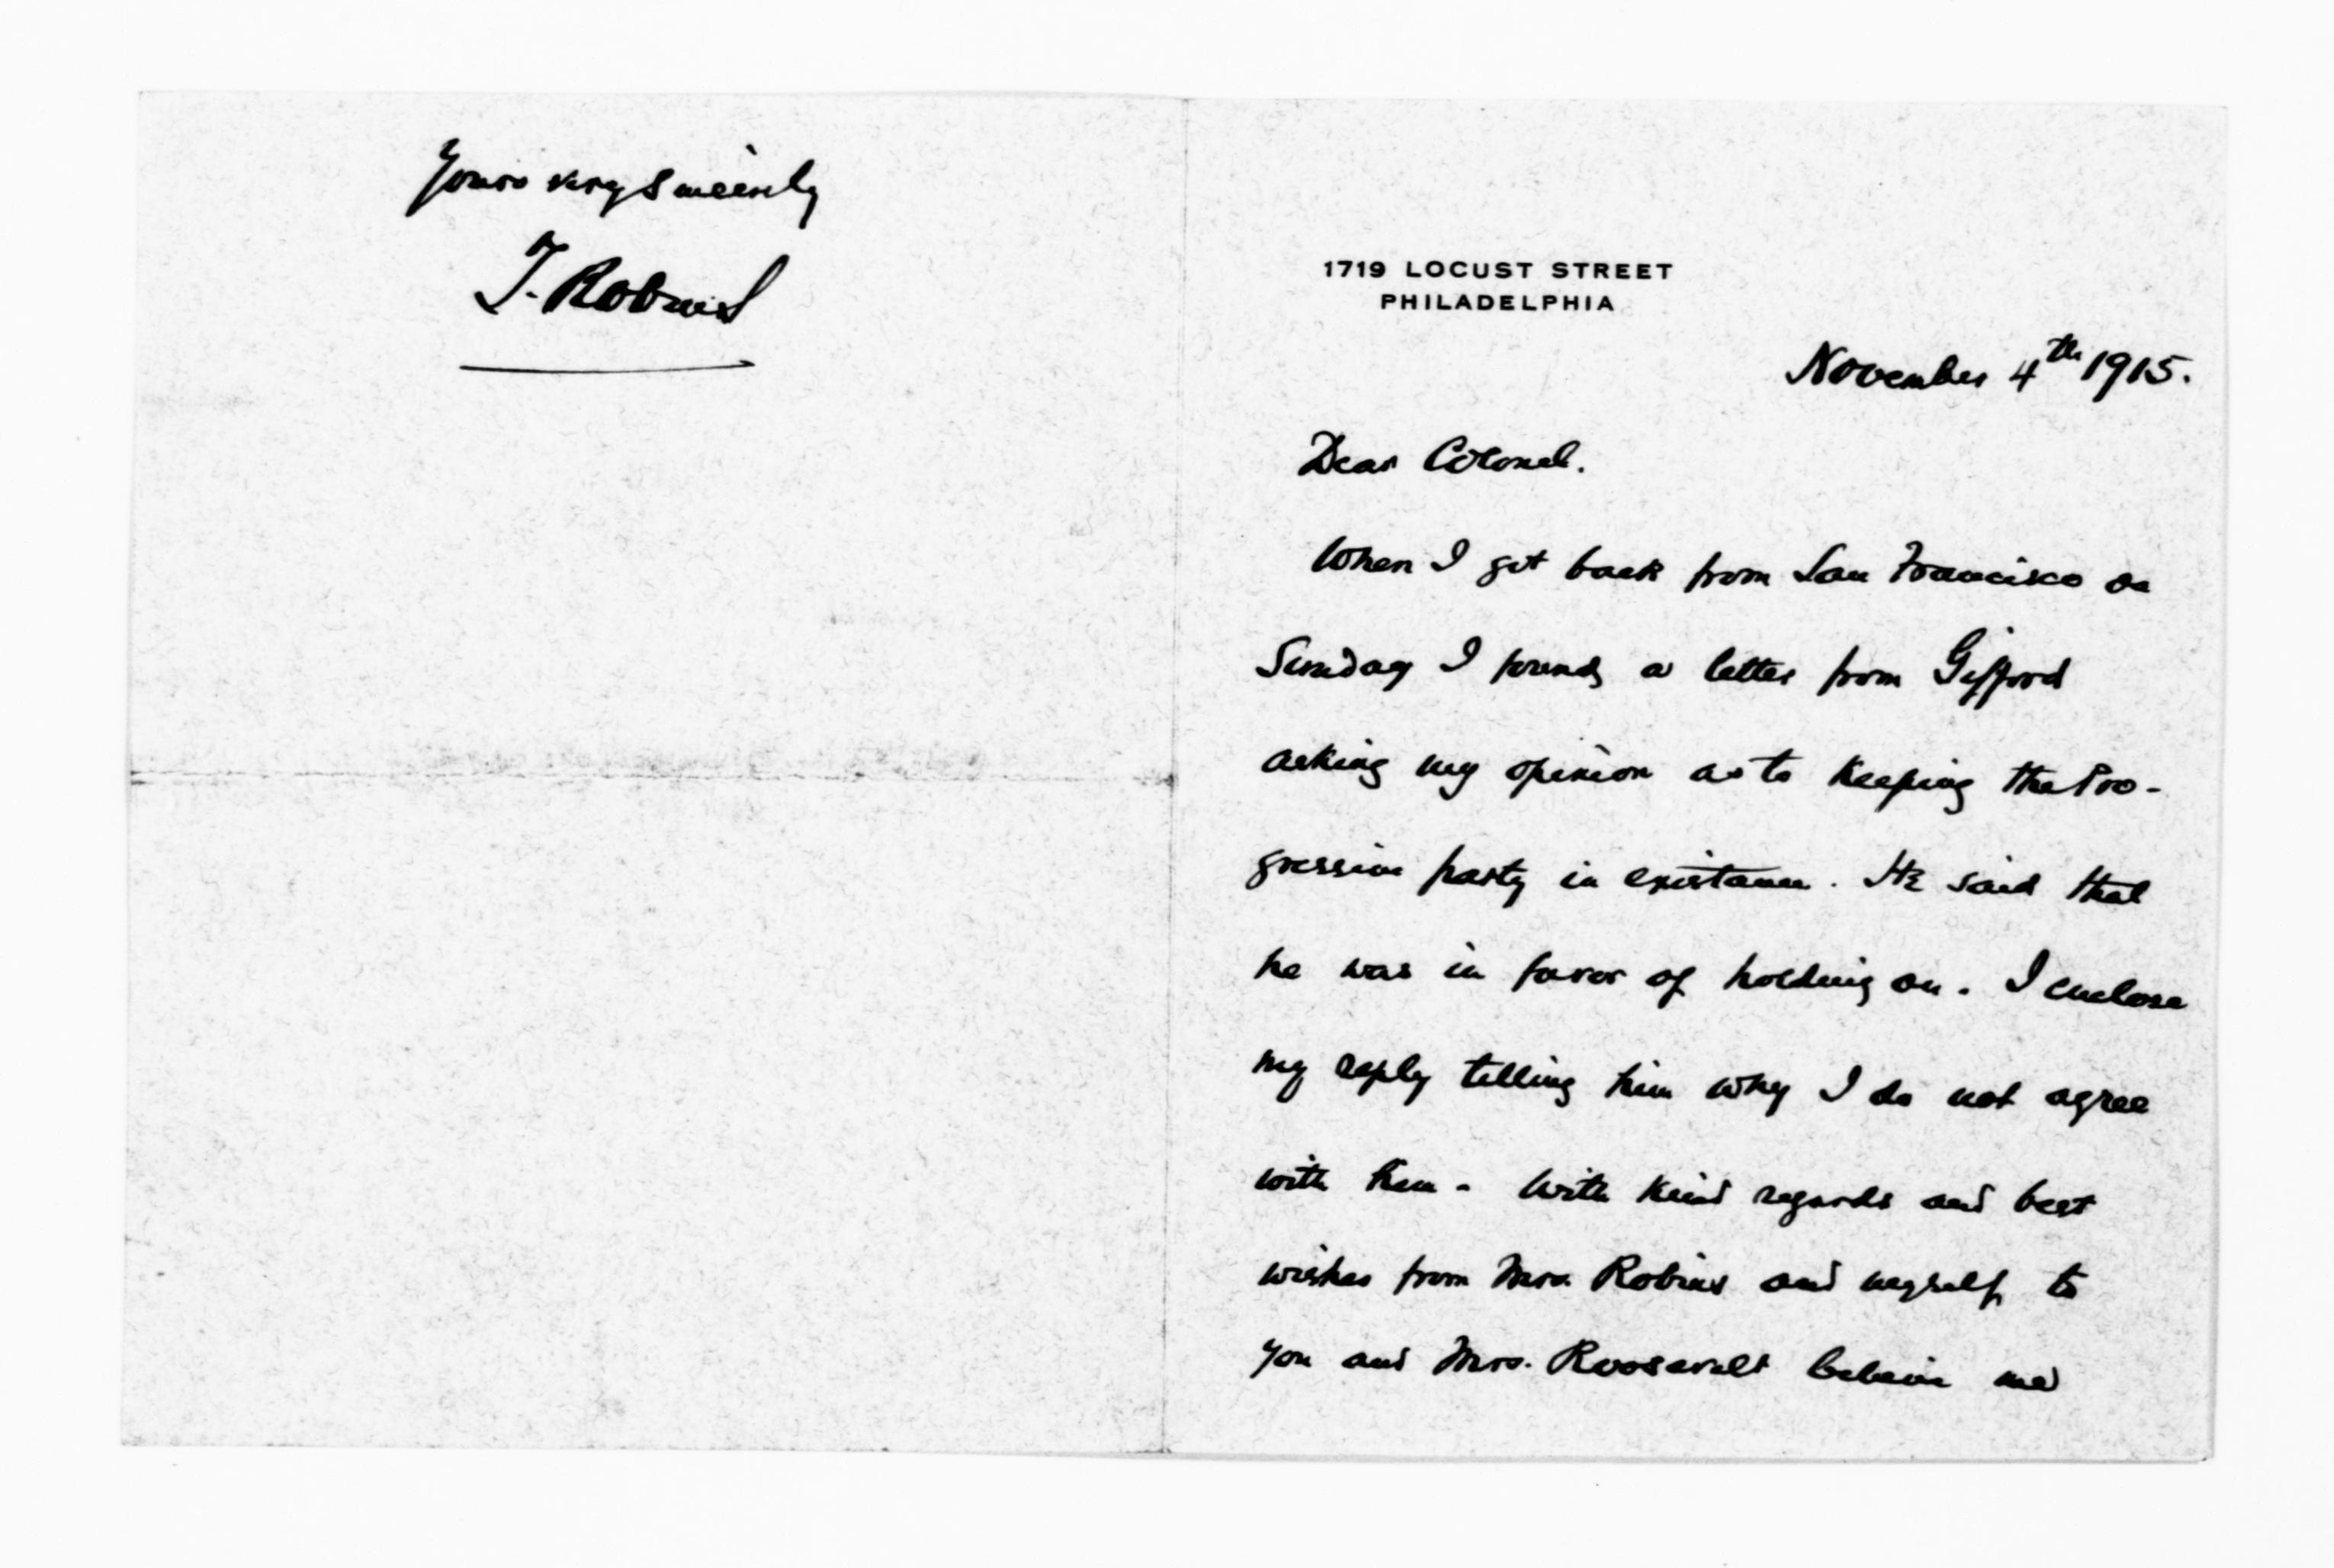 1719 LOCUST STREET
PHILADELPHIA
November 4th 1915.
Dear Colonel.
When I got back from San Francisco on
Sunday I found a letter from Gifford
asking my opinion as to keeping the Pro-
gressive party in existance. He said that
he was in favor of holding on. I enclose
my reply telling him why I do not agree
with him. With kind regards and best
wishes from Mrs. Robins and myself to
you and Mrs. Roosevelt believe me
Yours very sincerely
T. Robins